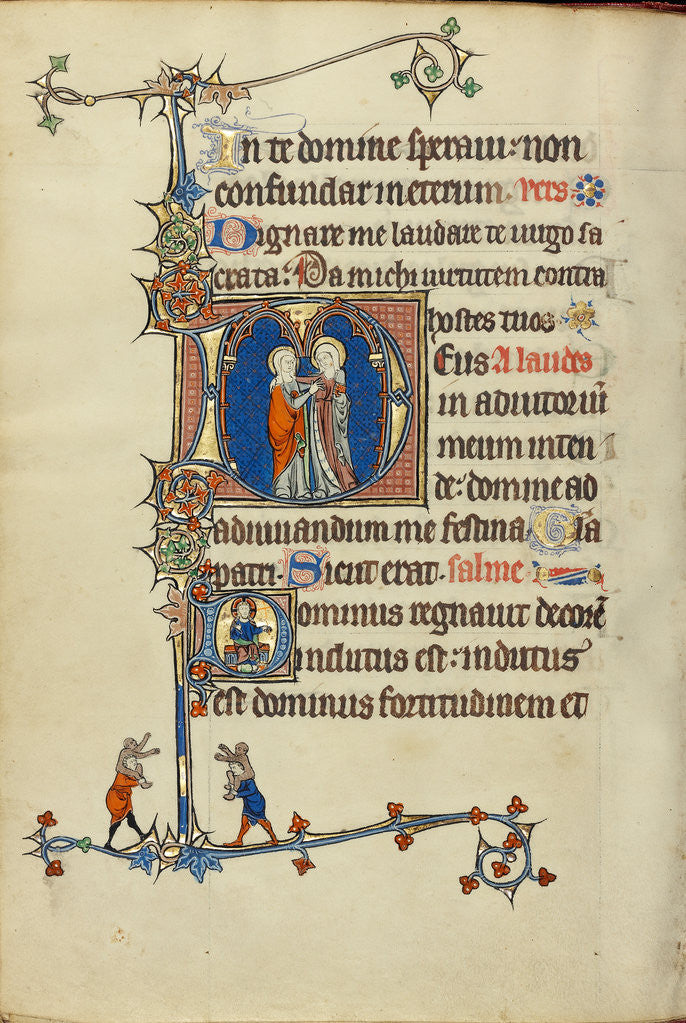 In te domine speraui: non
confundar in eterum. vers
Dignare me laudare te uirgo sa
crata: Da michi uirtutem contra
hostes tuos
DEus A laudes
in adiutoriū
meum inten
de: domine ad
adiuuandum me festina. Gła
patri. Sicut erat. salme
Dominus regnauit decorē
indutus est: indutus
est dominus fortitudinem et